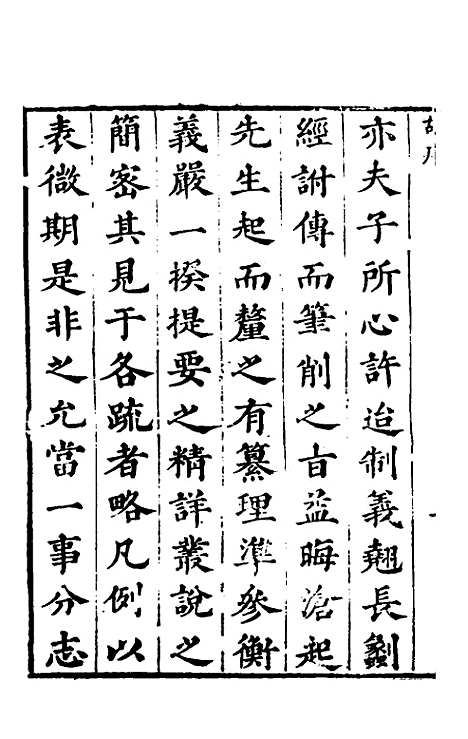 亦夫子所心許迨制義翹長剿
經討傳而筆削之旨益晦滄起
先生起而釐之有纂理準參衡
義嚴一揆提要之精詳叢說之
簡密其見于各疏者略凡例以
表微期是非之允當一事分志